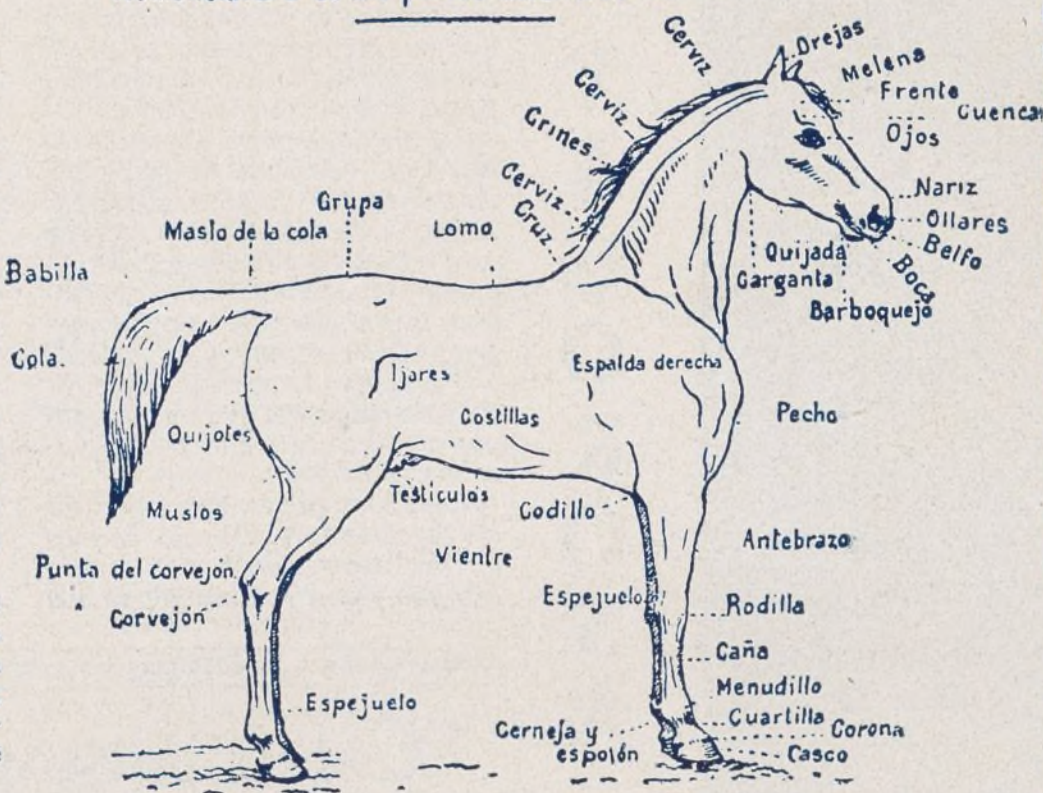 Cerviz
Orejas
Melena
Frente
Cuencas
Ojos
Cerviz
Crines
Cerviz
Cruz
Nariz
Ollares
Belfo
Boca
Quijada
Garganta
Barboquejo
Grupa
Maslo de la cola
Lomo
Babilla
Cola.
Ijares
Espalda derecha
Costillas
Pecho
Quijotes
Testiculos
Muslos
Codillo
Vientre
Antebrazo
Punta del corvejón
Corvejón
Espejuelo
Rodilla
Caña
Menudillo
Espejuelo
Cuartilla
Cerneja y
espolón
Corona
Casco